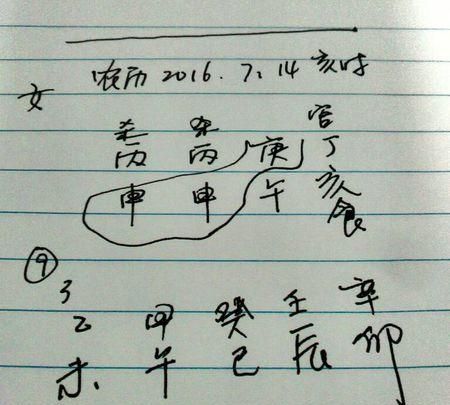 农历 2016.7.14 亥时
女
杀 杀 官
丙 丙 庚 丁
申 申 午 亥
食
⑨
3
乙 甲 癸 壬 辛
未 午 巳 辰 卯